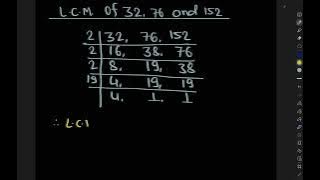 L.C.M. Of 32, 76 and 152
2 | 32, 76, 152
2 | 16, 38, 76
2 | 8, 19, 38
19 | 4, 19, 19
4, 1, 1
∴ L.C.M